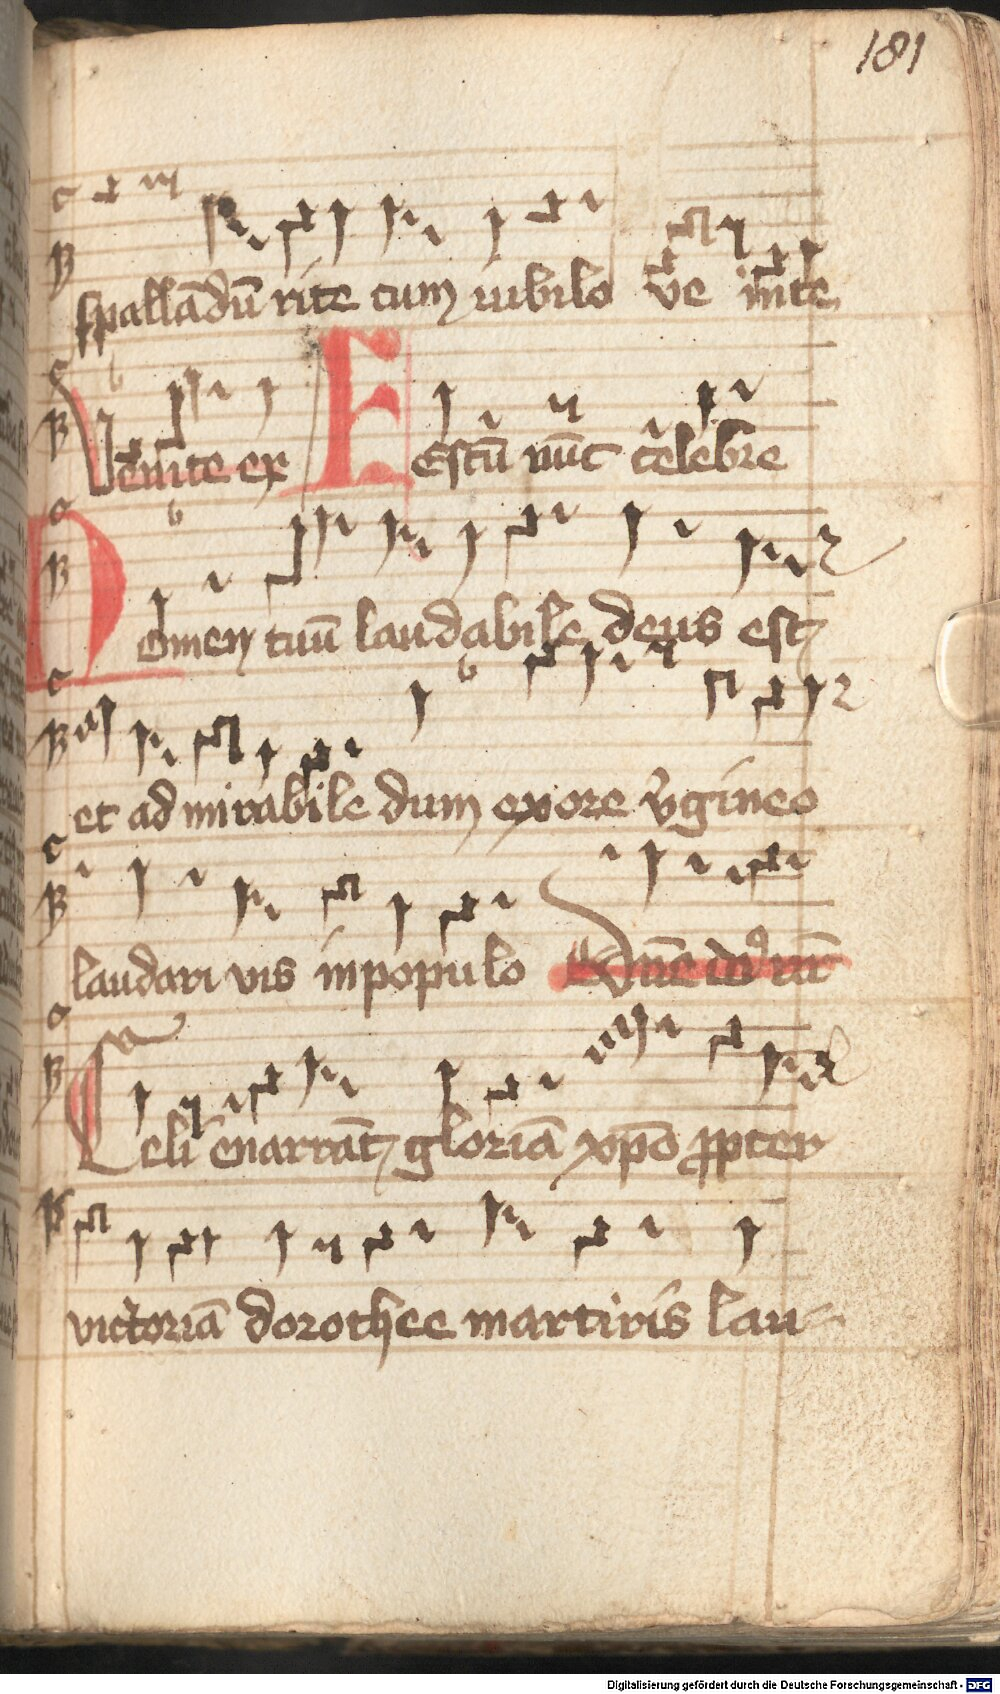 181
spallādū rite cum iubilo
Venite ex Festū nūc celebre
Nomen tuū laudabile deus est
et admirabile dum exore v̓gineo
laudari vis in populo
Celi enarrāt gloriā xp̄o ꝓpter
victoriā dorothee martiris lau-
Digitalisierung gefördert durch die Deutsche Forschungsgemeinschaft - DFG